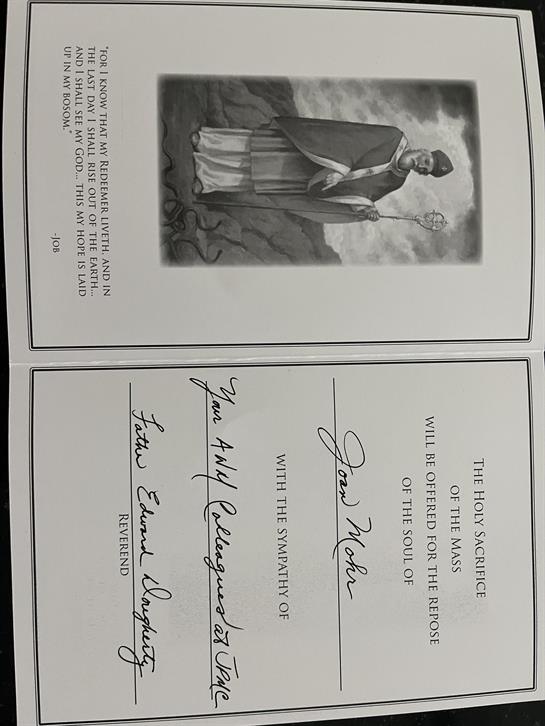 "For I know that my Redeemer liveth. And in
the last day I shall rise out of the earth...
and I shall see my God... This my hope is laid
up in my bosom."
-Job
The Holy Sacrifice
of the Mass
will be offered for the repose
of the soul of
Joan Mohr
with the sympathy of
Your AWM Colleagues at JPMC
Father Edward Dougherty
Reverend